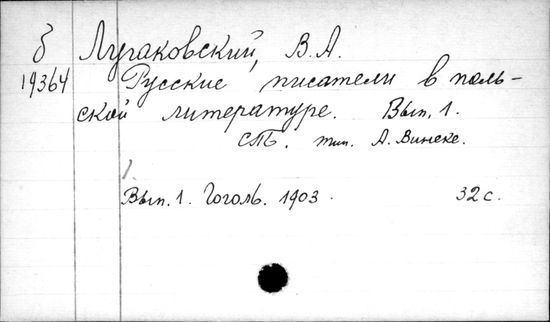 б Лугаковский, В.А.
19364 Русские писатели в поль-
ской литературе. Вып. 1.
СПб. тип. А. Винеке.
1.
Вып. 1. Гоголь. 1903. 32 с.